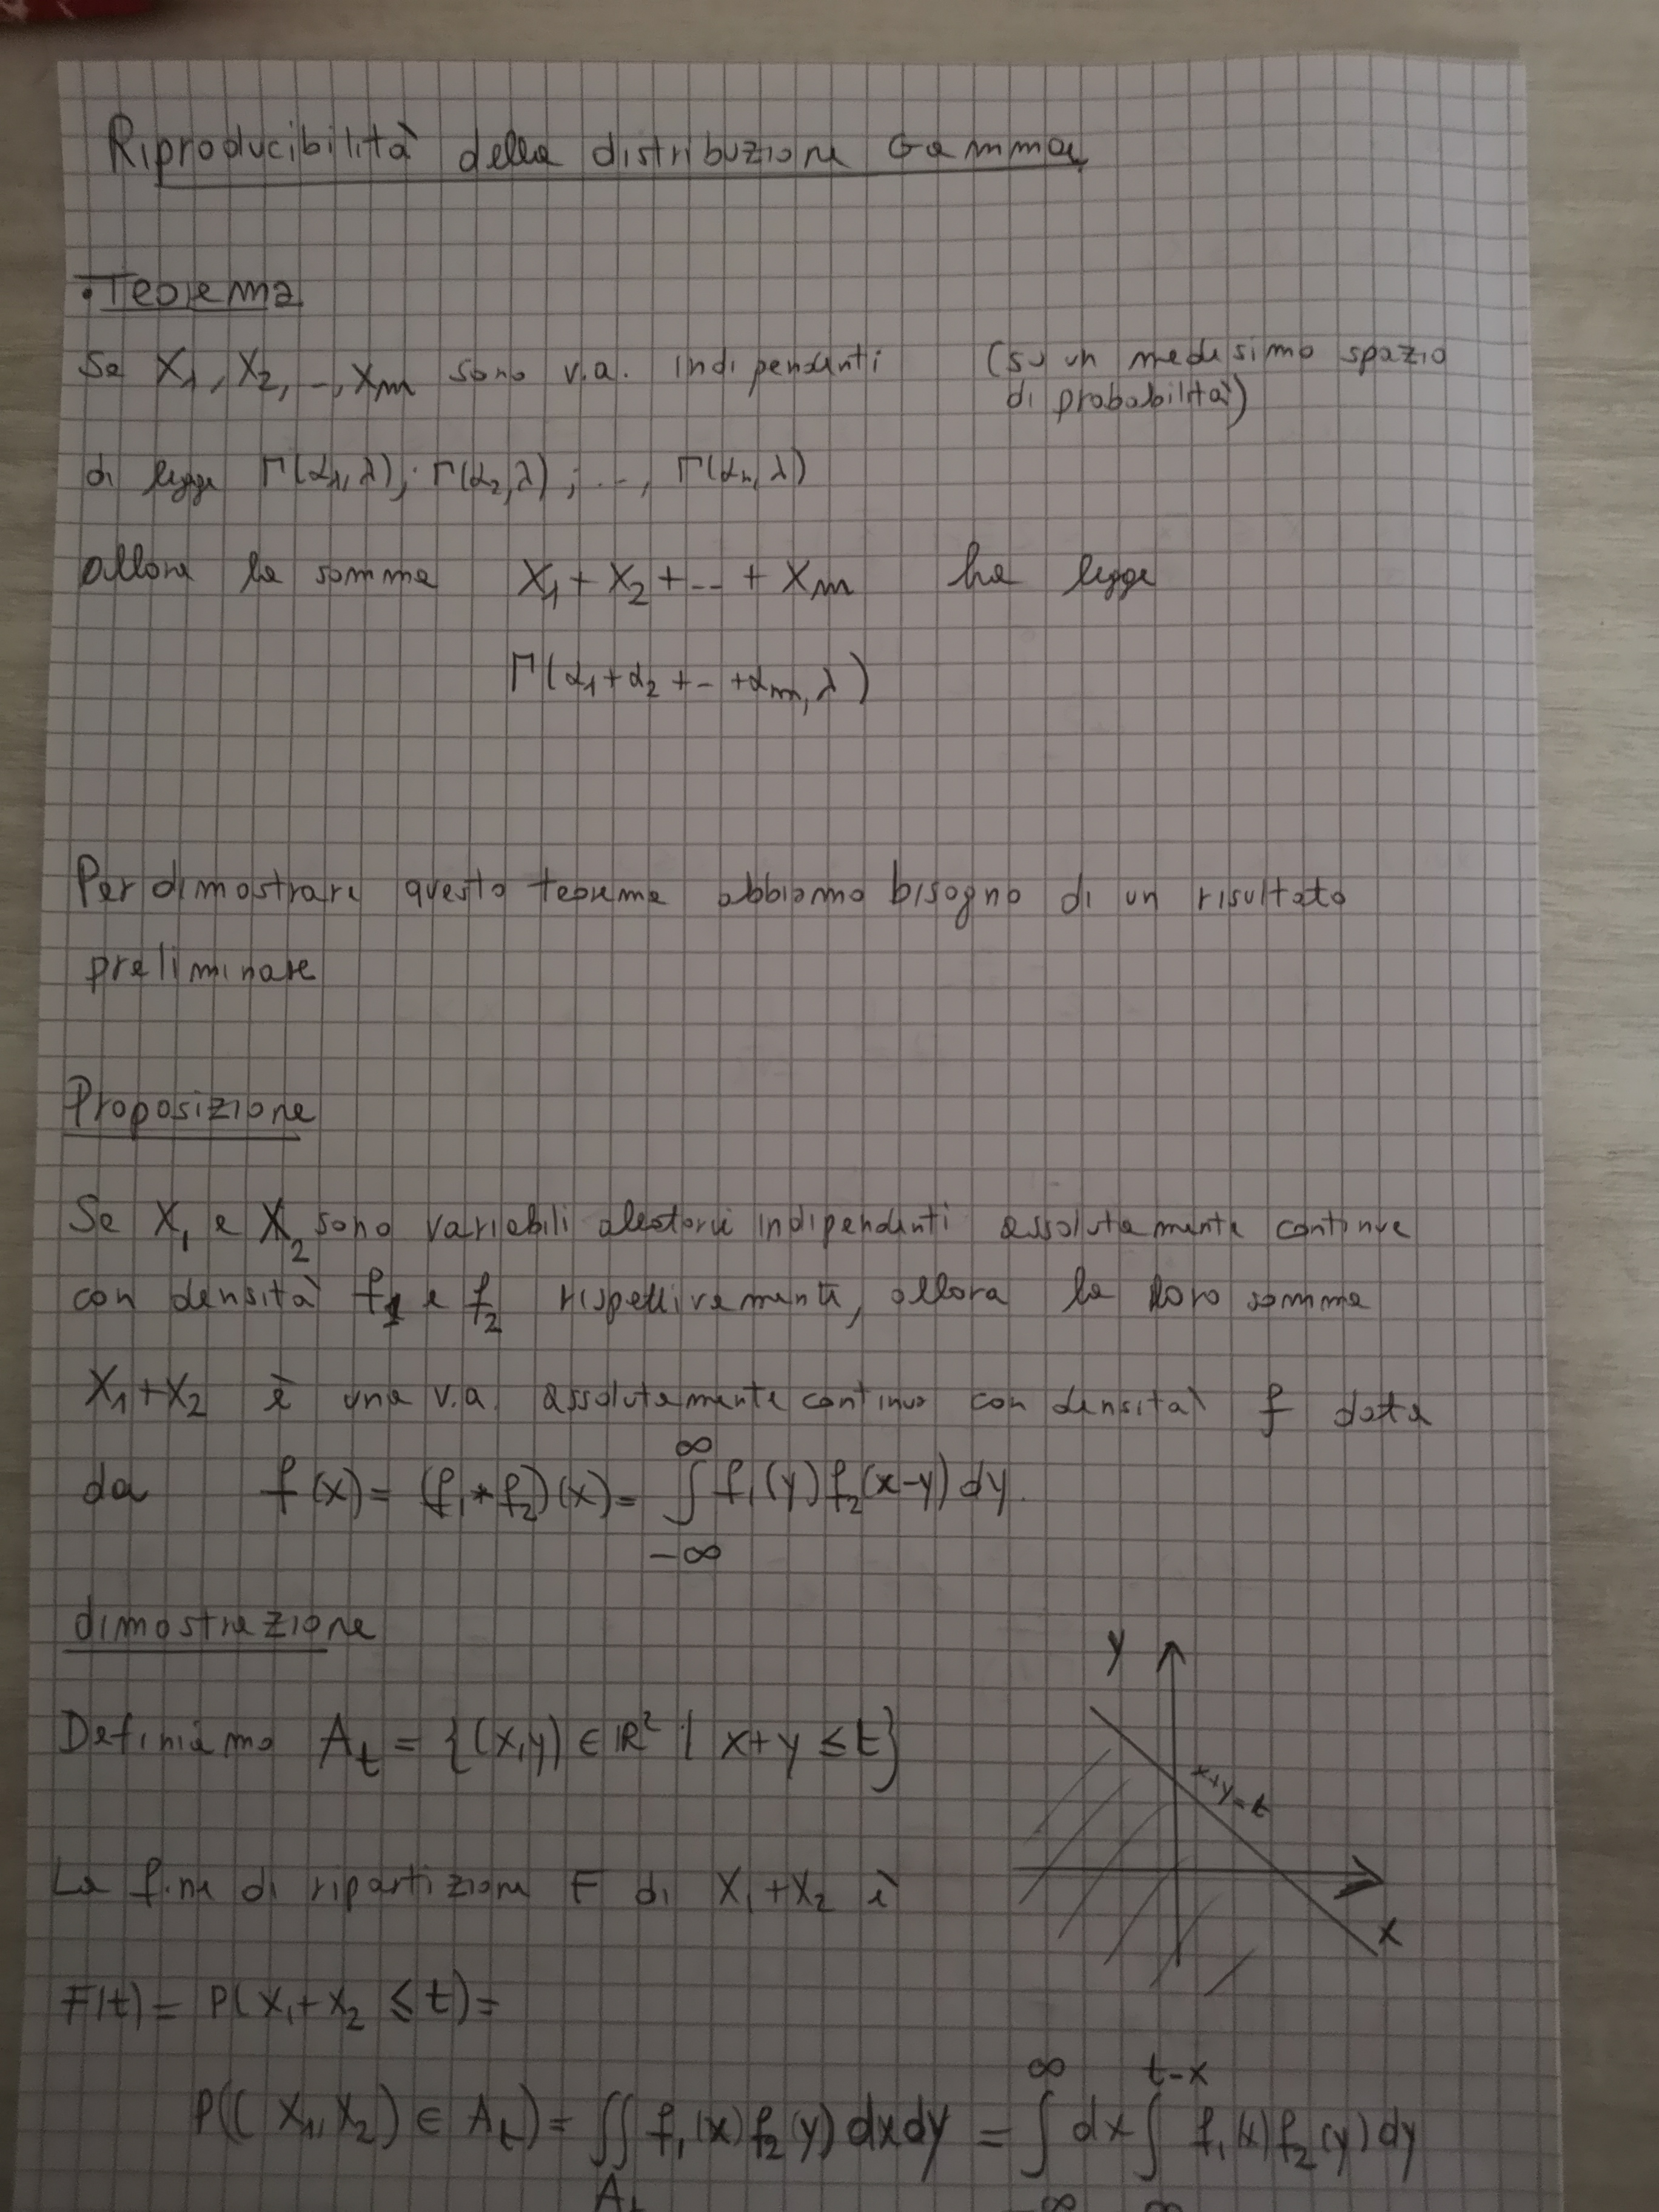 Riproducibilità della distribuzione Gamma
• Teorema
Se X₁, X₂, .., Xₘ sono v.a. indipendenti (su un medesimo spazio
di probabilità)
di legge Γ(α₁, λ); Γ(α₂, λ); ..., Γ(αₙ, λ)
allora la somma X₁ + X₂ + -- + Xₘ ha legge
Γ(α₁ + α₂ + - + αₘ, λ)
Per dimostrare questo teorema abbiamo bisogno di un risultato
preliminare
Proposizione
Se X₁ e X₂ sono variabili aleatorie indipendenti assolutamente continue
con densità f₁ e f₂ rispettivamente, allora la loro somma
X₁+X₂ è una v.a. assolutamente continua con densità f data
da f(x) = (f₁ * f₂)(x) = ∫_{-∞}^{∞} f₁(y) f₂(x-y) dy.
dimostrazione
y
Definiamo Aₜ = {(x,y) ∈ ℝ² | x+y ≤ t}
x+y=t
La f.ne di ripartizione F di X₁+X₂ è
x
F(t) = P(X₁+X₂ ≤ t) =
P((X₁, X₂) ∈ Aₜ) = ∬_{Aₜ} f₁(x) f₂(y) dx dy = ∫_{-∞}^{∞} dx ∫_{∞}^{t-x} f₁(x) f₂(y) dy